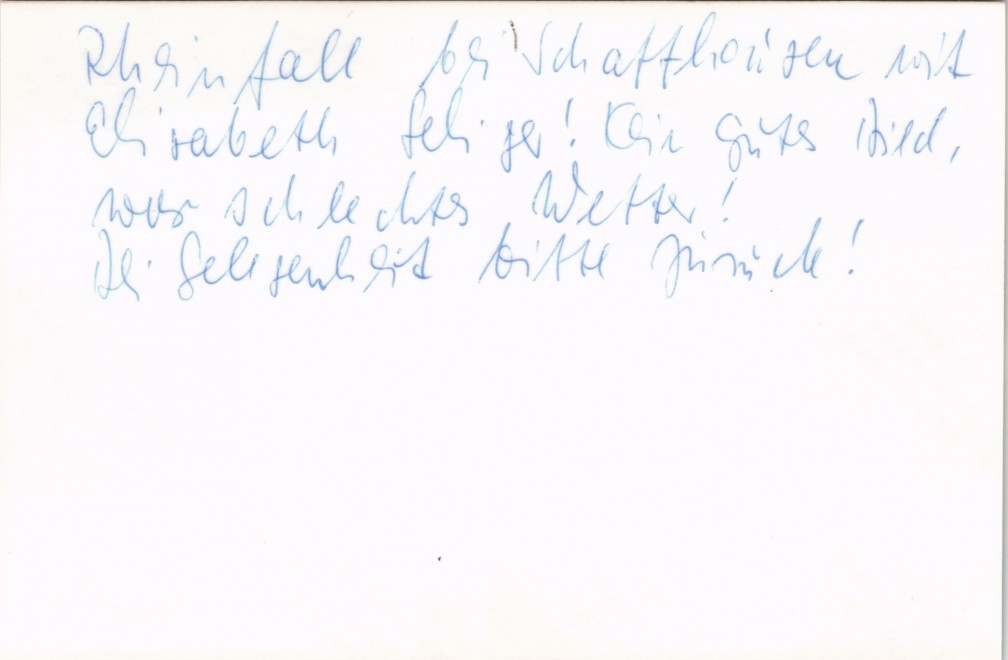 Rheinfall bei Schaffhausen mit
Elisabeth ! Kein gutes Bild,
war schlechtes Wetter!
Bei Gelegenheit bitte zurück!